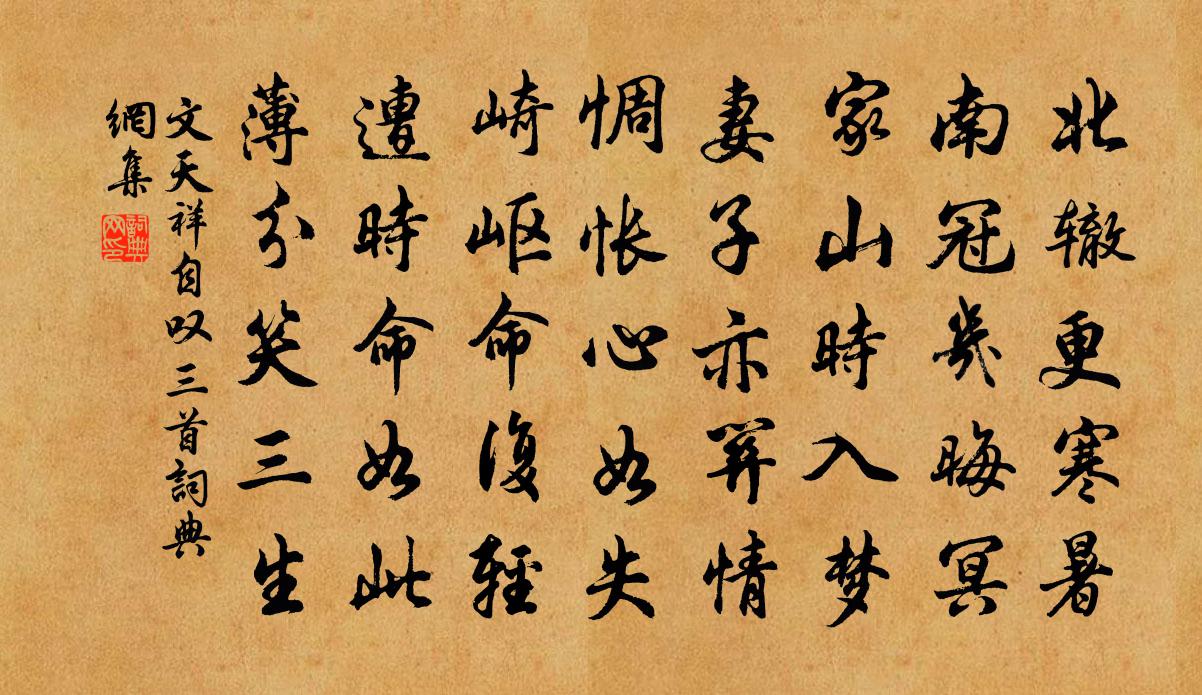 北辙更寒暑
南冠幾晦冥
家山時入梦
妻子亦関情
惆怅心如失
崎岖命復輕
遭時命如此
薄分笑三生
文天祥自叹三首詞典
網集
詞典
网印